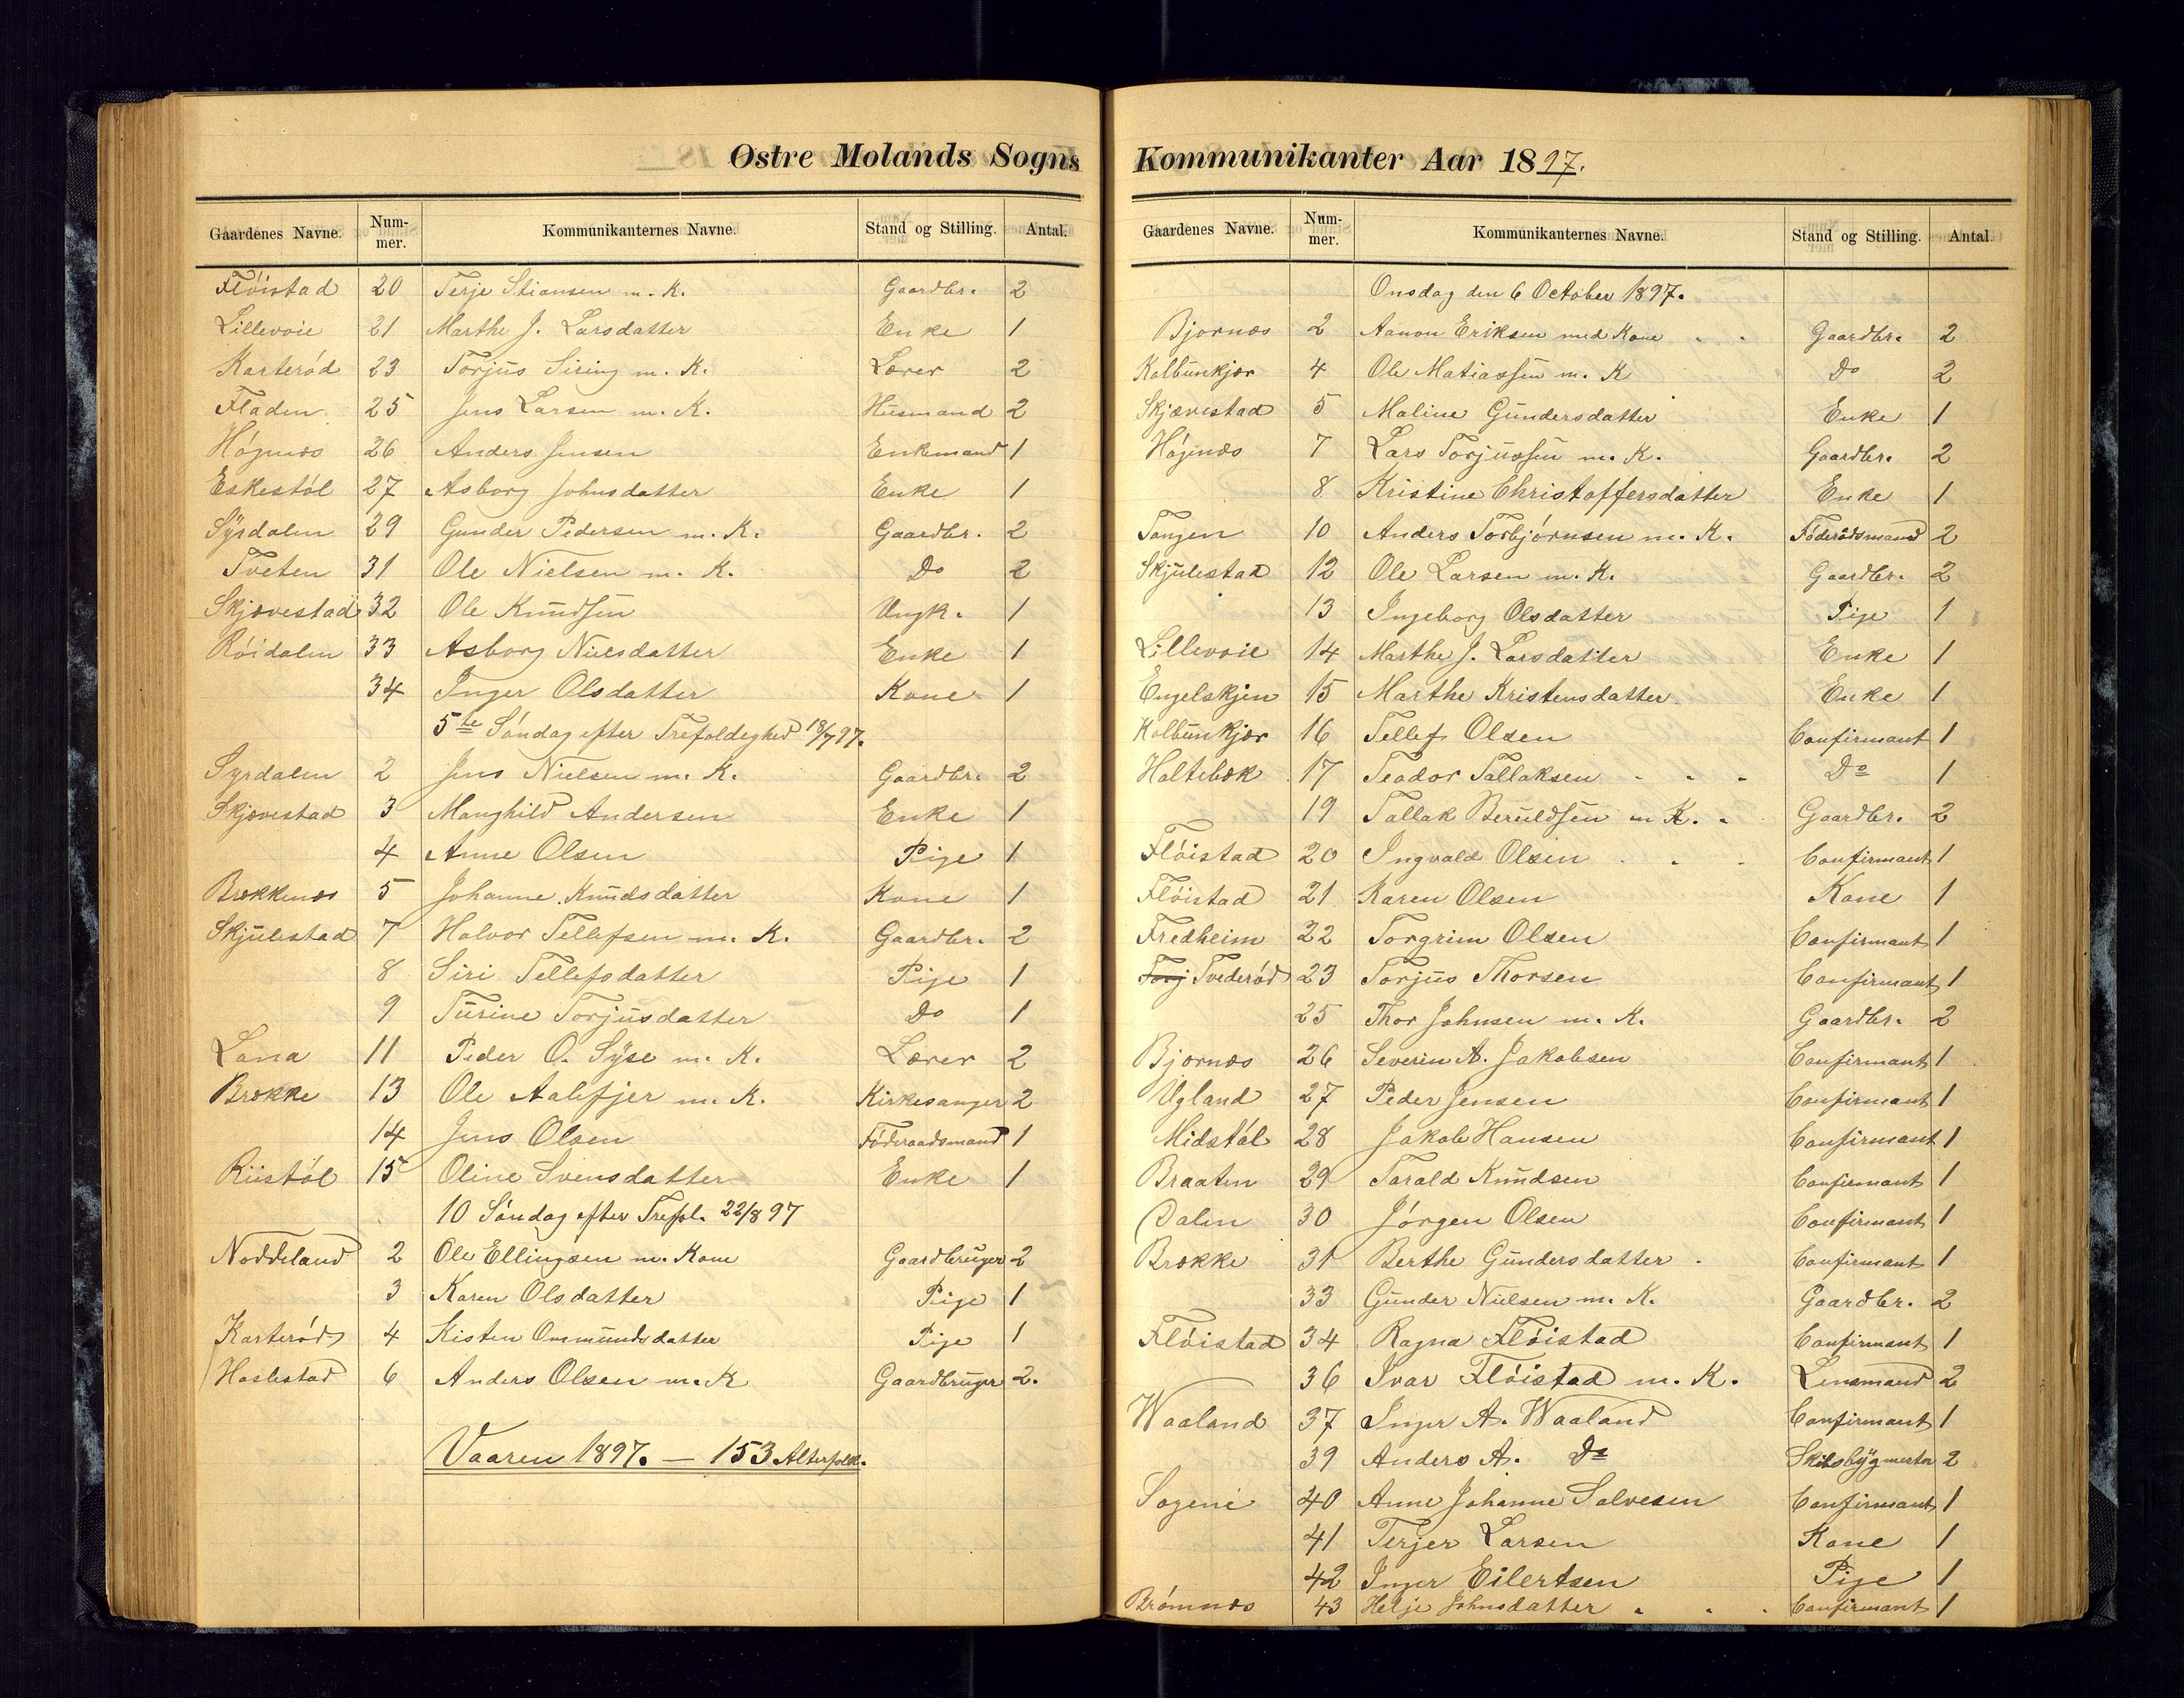 Østre Molands Sogns
Gaardenes Navne. Num-mer. Kommunikanternes Navne. Stand og Stilling. Antal.
Flöistad 20 Terje Stiansen m. K. Gaardbr. 2
Lillevoie 21 Marthe J. Larsdatter Enke 1
Karteröd 23 Torjus Siring m. K. Lærer 2
Fladen 25 Jens Larsen m. K. Husmand 2
Högnæs 26 Anders Jensen Enkemand 1
Eskestöl 27 Asborg Johnsdatter Enke 1
Syrdalen 29 Gunder Pedersen m. K. Gaardbr. 2
Tveten 31 Ole Nielsen m. K. Do 2
Skjævestad 32 Ole Knudsen Ungk. 1
Röidalen 33 Asborg Nielsdatter Enke 1
34 Inger Olsdatter Kone 1
5te Söndag efter Trefoldighed 18/7 97.
Syrdalen 2 Jens Nielsen m. K. Gaardbr. 2
Skjævestad 3 Manghild Andersen Enke 1
4 Anne Olsen Pige 1
Brækkenæs 5 Johanne Knudsdatter Kone 1
Skjulestad 7 Halvor Tellefsen m. K. Gaardbr. 2
8 Siri Tellefsdatter Pige 1
9 Turine Torjusdatter Do 1
Lana 11 Peder O. Syse m. K. Lærer 2
Brække 13 Ole Aalefjer m. K. Kirkesanger 2
14 Jens Olsen Föderaadsmand 1
Riistöl 15 Oline Svensdatter Enke 1
10 Söndag efter Trefol. 22/8 97
Noddeland 2 Ole Ellingsen m. Kone Gaardbruger 2
3 Karen Olsdatter Pige 1
Karteröd 4 Kisten Ommundsdatter Pige 1
Haslestad 6 Anders Olsen m. K Gaardbruger 2.
Vaaren 1897. — 153 Alterfolk.
Kommunikanter Aar 1897.
Gaardenes Navne. Num-mer. Kommunikanternes Navne. Stand og Stilling. Antal.
Onsdag den 6 October 1897.
Bjornæs 2 Aanon Eriksen med Kone Gaardbr. 2
Kalbunkjær 4 Ole Matiassen m. K Do 2
Skjævestad 5 Maline Gundersdatter Enke 1
Högnæs 7 Lars Torjussen m. K. Gaardbr. 2
8 Kristine Christoffersdatter Enke 1
Tangen 10 Anders Torbjörnsen m. K. Föderådsmand 2
Skjulestad 12 Ole Larsen m. K. Gaardbr. 2
13 Ingeborg Olsdatter Pige 1
Lillevoie 14 Marthe J. Larsdatter Enke 1
Engelskjen 15 Marthe Kristensdatter Enke 1
Kalbunkjær 16 Tellef Olsen Confirmant 1
Holtebæk 17 Teodor Tallaksen Do 1
19 Tallak Beruldsen m K. Gaardbr. 2
Flöistad 20 Ingvald Olsen Confirmant 1
Flöistad 21 Karen Olsen Kone 1
Fredheim 22 Torgrim Olsen Confirmant 1
Torj Tvederöd 23 Torjus Thorsen Confirmant 1
25 Thor Johnsen m. K. Gaardbr. 2
Bjornæs 26 Severin A. Jakobsen Confirmant 1
Ugland 27 Peder Jensen Confirmant 1
Midstöl 28 Jakob Hansen Confirmant 1
Braaten 29 Tarald Knudsen Confirmant 1
Dalen 30 Jörgen Olsen Confirmant 1
Brække 31 Berthe Gundersdatter Confirmant 1
33 Gunder Nielsen m. K. Gaardbr. 2
Flöistad 34 Ragna Flöistad Confirmant 1
36 Ivar Flöistad m. K. Lensmand 2
Waaland 37 Inger A. Waaland Confirmant 1
39 Anders A. Do Skibsbygmester 2
Sogene 40 Anne Johanne Salvesen Confirmant 1
41 Terjer Larsen Kone 1
42 Inger Eilertsen Pige 1
Brömnæs 43 Helje Johnsdatter Confirmant 1